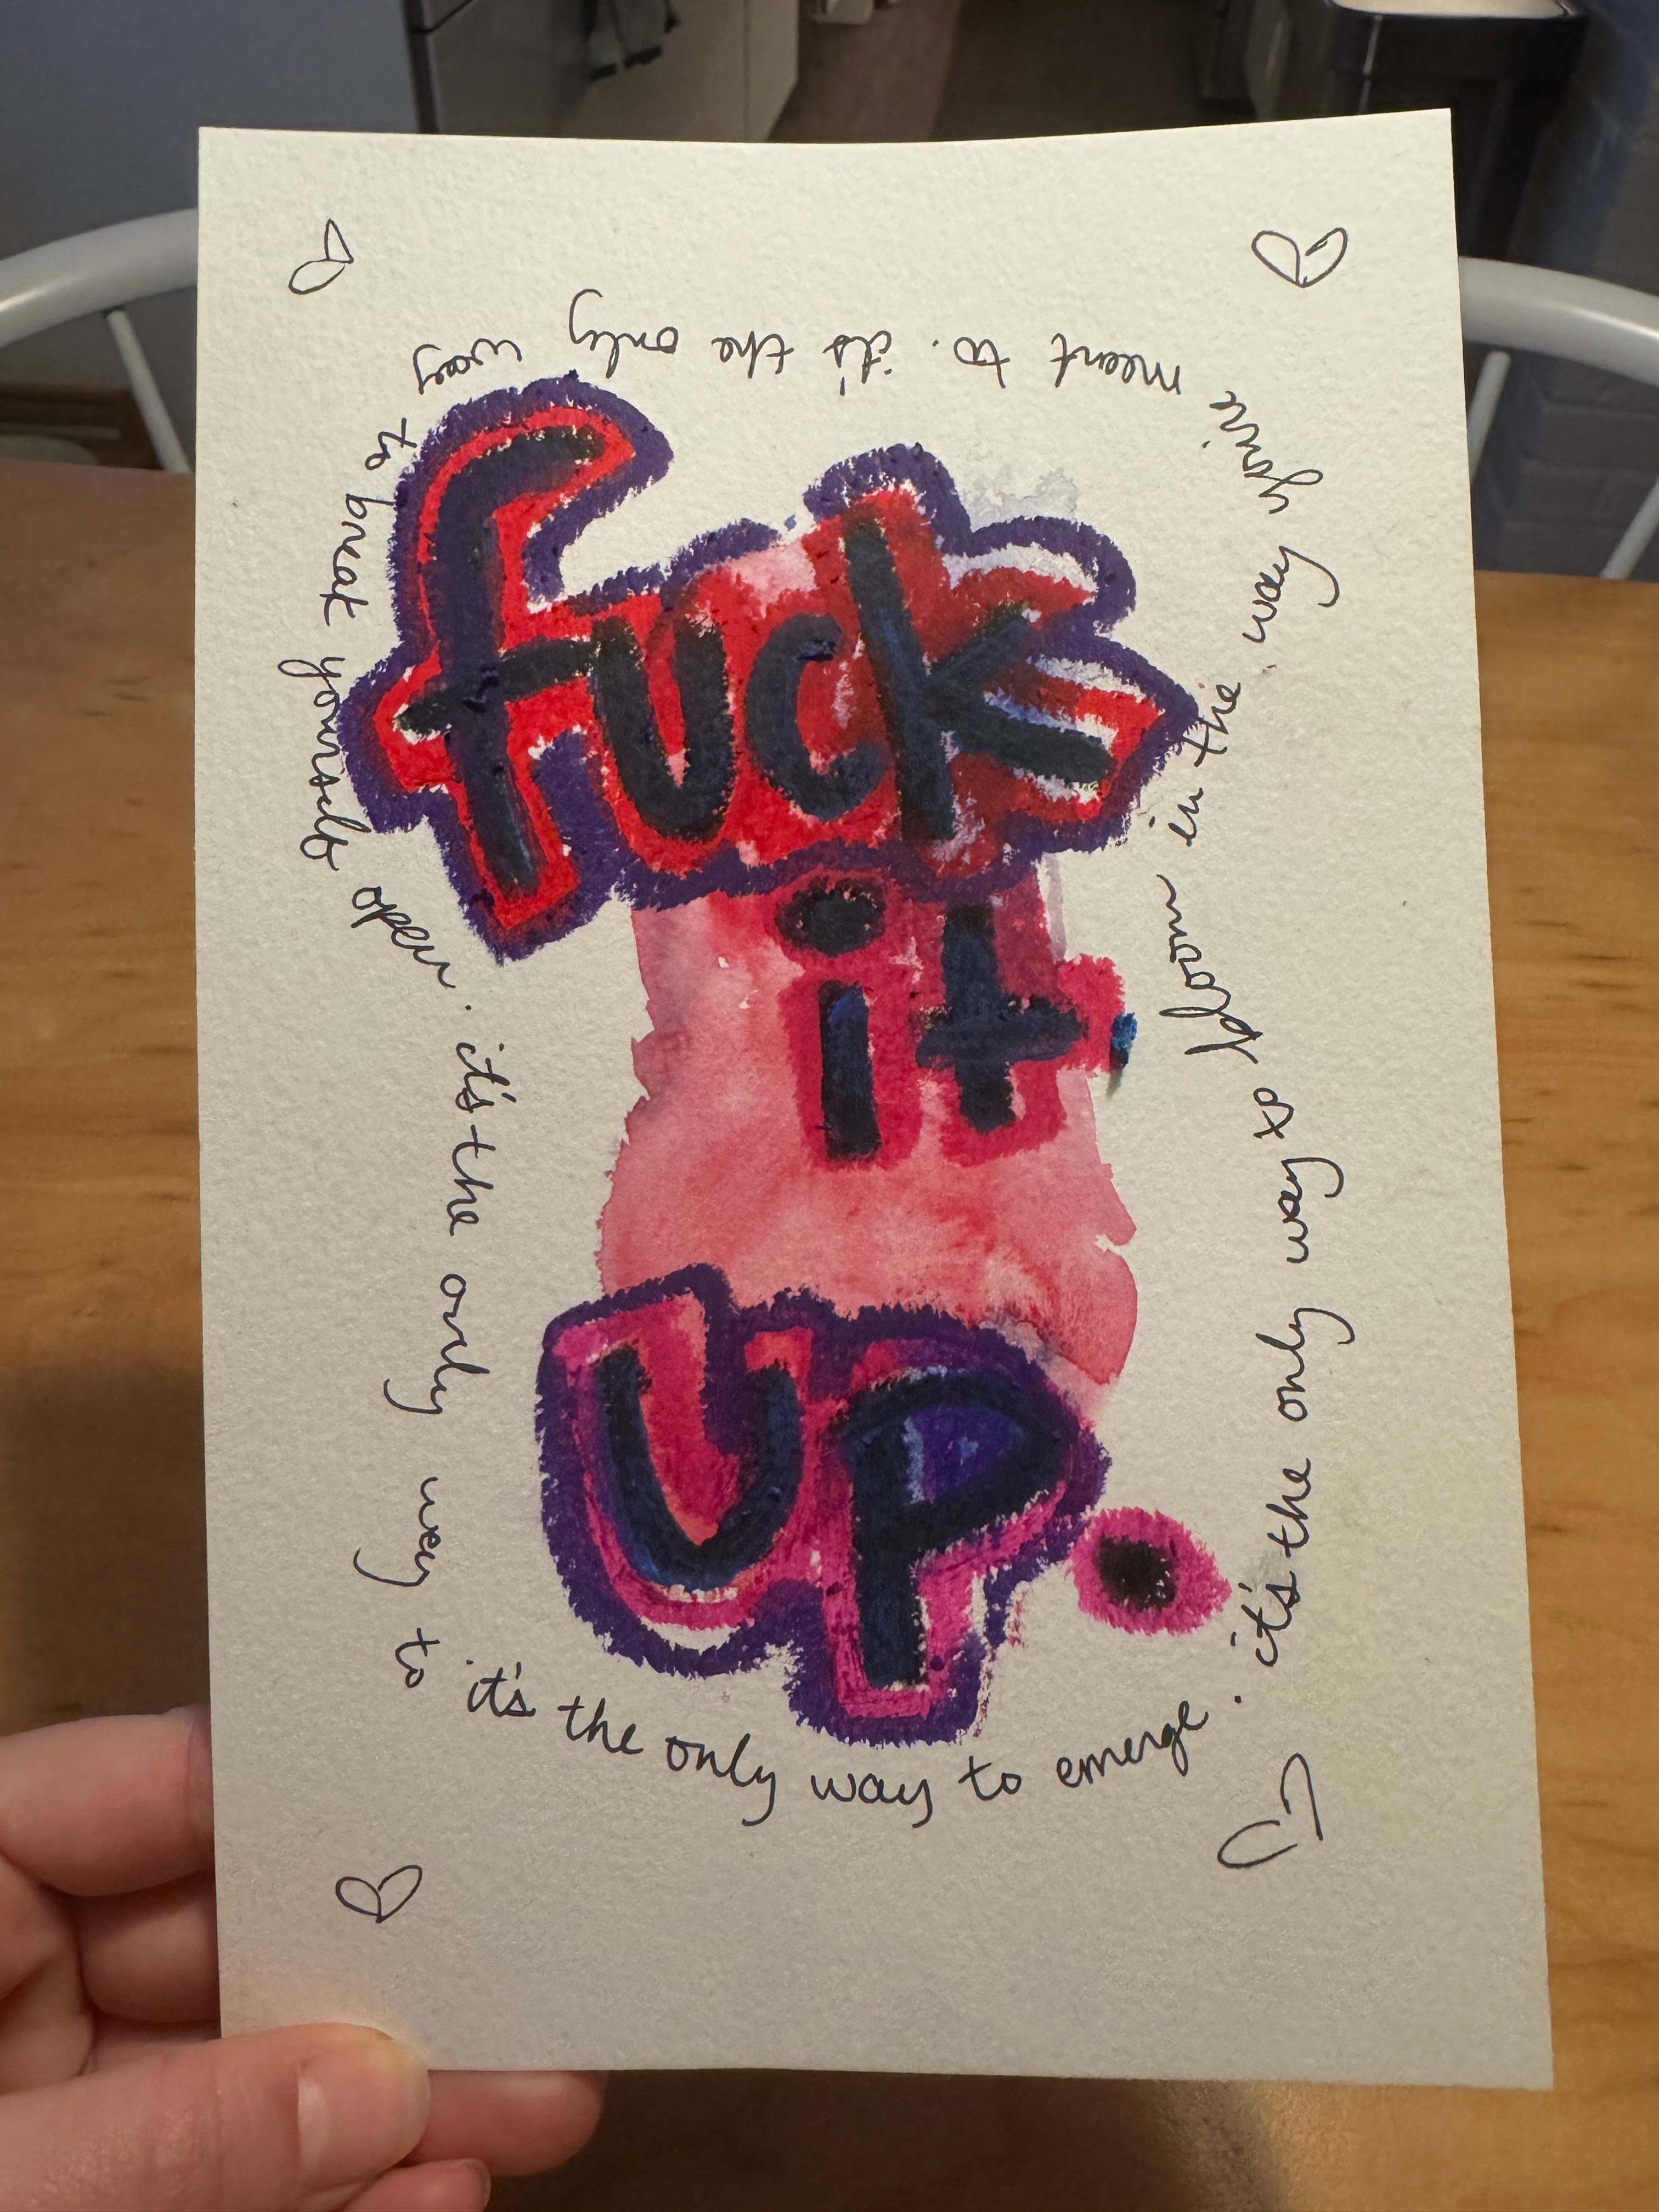 fuck
it
up.
it's the only way to emerge.
it's the only way to bloom in the way you're
meant to. it's the only way
to break yourself open. it's the only way to